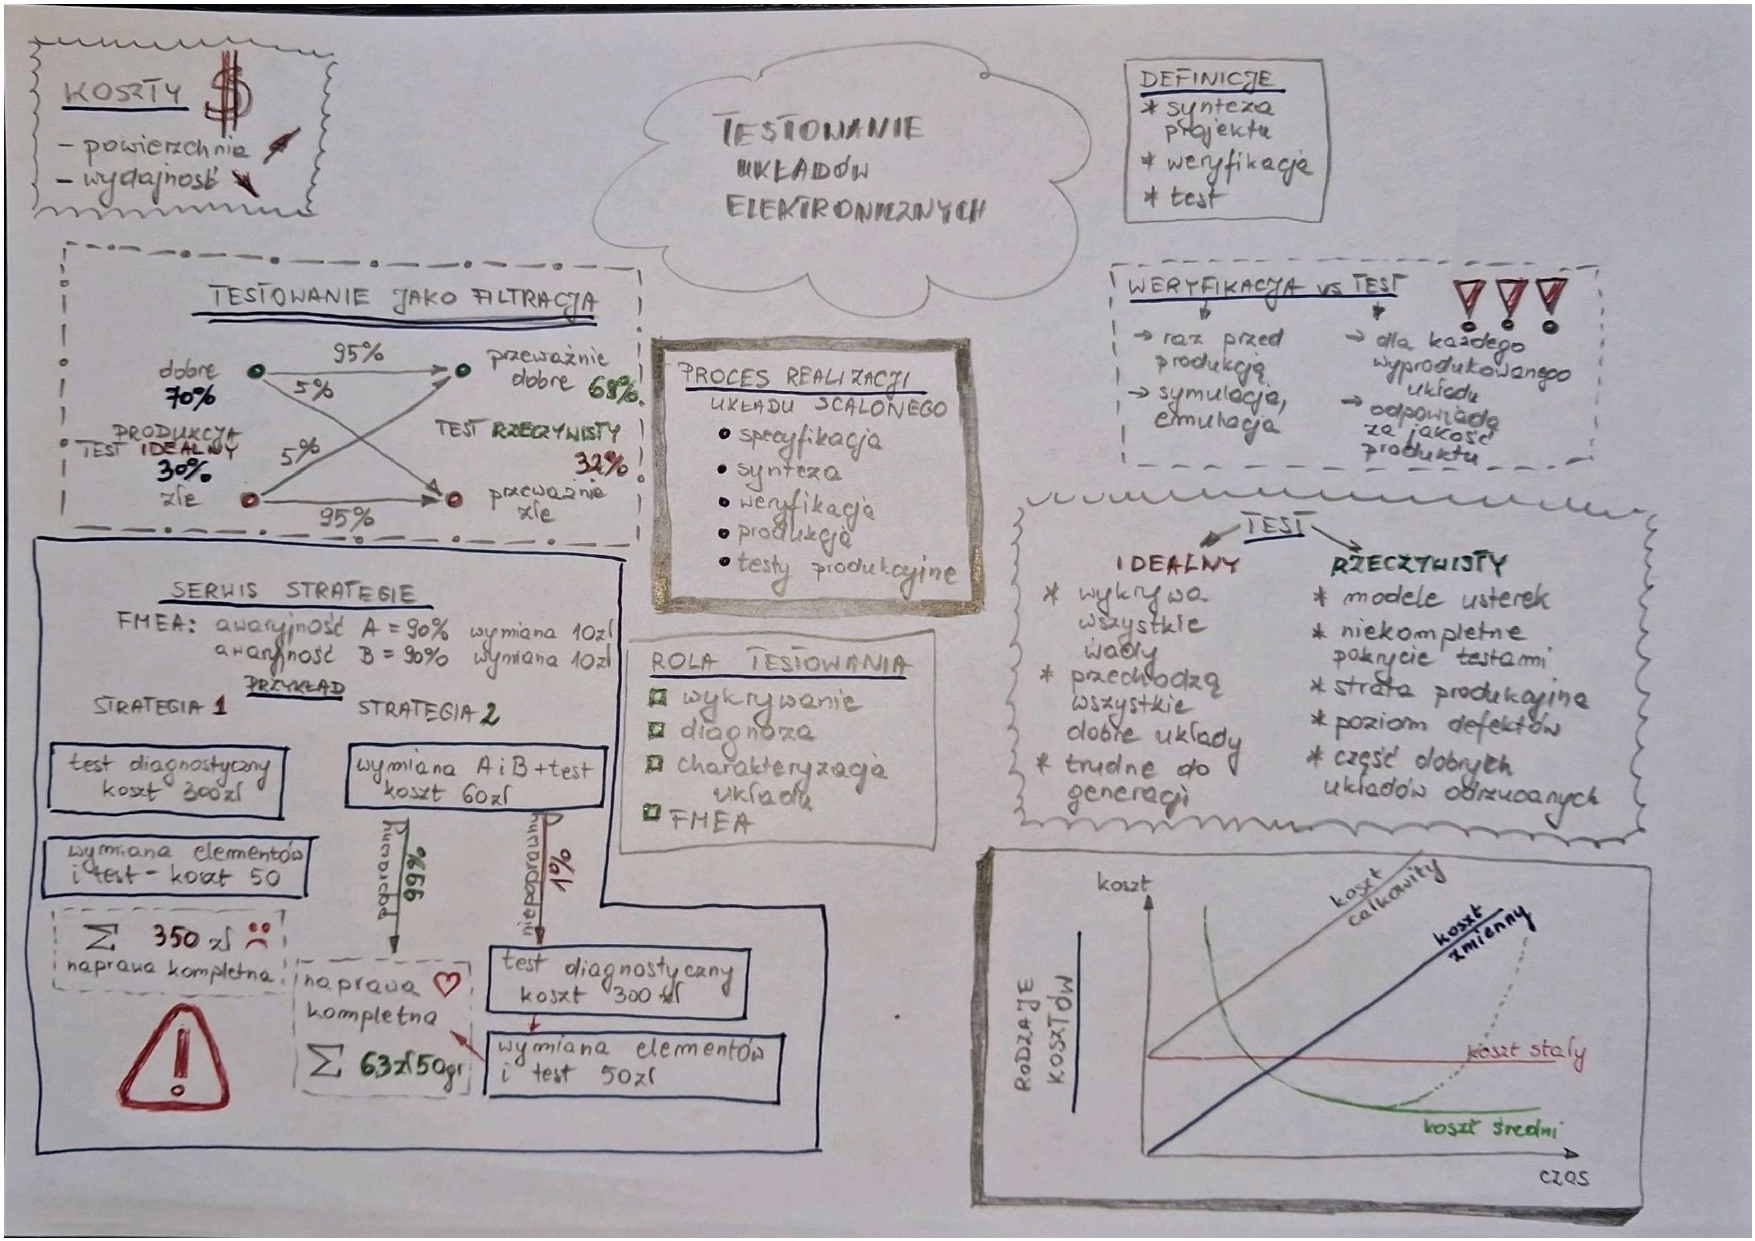 KOSZTY $
- powierzchnia
- wydajność
TESTOWANIE
UKŁADÓW
ELEKTRONICZNYCH
DEFINICJE
* synteza
projektu
* weryfikacja
* test
TESTOWANIE JAKO FILTRACJA
dobre
70%
95%
5%
przeważnie
dobre 68%
PRODUKCJA
TEST IDEALNY
30%
złe
5%
95%
TEST RZECZYWISTY
32%
przeważnie
złe
PROCES REALIZACJI
UKŁADU SCALONEGO
• specyfikacja
• synteza
• weryfikacja
• produkcja
• testy produkcyjne
WERYFIKACJA vs TEST !!!
→ raz przed
produkcją
→ symulacja,
emulacja
→ dla każdego
wyprodukowanego
układu
→ odpowiada
za jakość
produktu
TEST
IDEALNY
* wykrywa
wszystkie
wady
* przechodzą
wszystkie
dobre układy
* trudne do
generacji
RZECZYWISTY
* modele usterek
* niekompletne
pokrycie testami
* strata produkcyjna
* poziom defektów
* część dobrych
układów odrzucanych
SERWIS STRATEGIE
FMEA: awaryjność A = 90% wymiana 10zł
awaryjność B = 90% wymiana 10zł
PRZYKŁAD
STRATEGIA 1
test diagnostyczny
koszt 300zł
wymiana elementów
i test - koszt 50
Σ 350 zł
naprawa kompletna
!
STRATEGIA 2
wymiana A i B + test
koszt 60zł
99%
niepoprawny
1%
test diagnostyczny
koszt 300 zł
wymiana elementów
i test 50zł
naprawa
kompletna
Σ 63zł50gr
ROLA TESTOWANIA
wykrywanie
diagnoza
charakteryzacja
układu
FMEA
RODZAJE
KOSZTÓW
koszt
koszt
całkowity
koszt
zmienny
koszt stały
koszt średni
czas